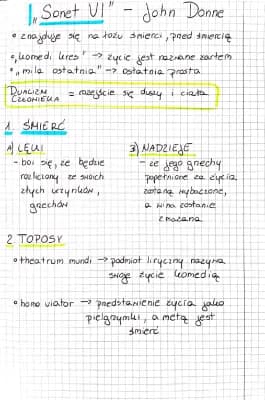 „Sonet VI" – John Donne
• znajduje się na łożu śmierci, przed śmiercią
• „komedii kres" → życie jest nazwane żartem
• „mila ostatnia" → ostatnia prosta
DUALIZM CZŁOWIEKA = rozejście się duszy i ciała
1. ŚMIERĆ
A) LĘKI
- boi się, że będzie
rozliczony ze swoich
złych uczynków,
grzechów
B) NADZIEJE
- że jego grzechy
popełnione za życia
zostaną wybaczone,
a wina zostanie
zmazana
2. TOPOSY
• theatrum mundi → podmiot liryczny nazywa
swoje życie komedią
• homo viator → przedstawienie życia jako
pielgrzymki, a metą jest
śmierć